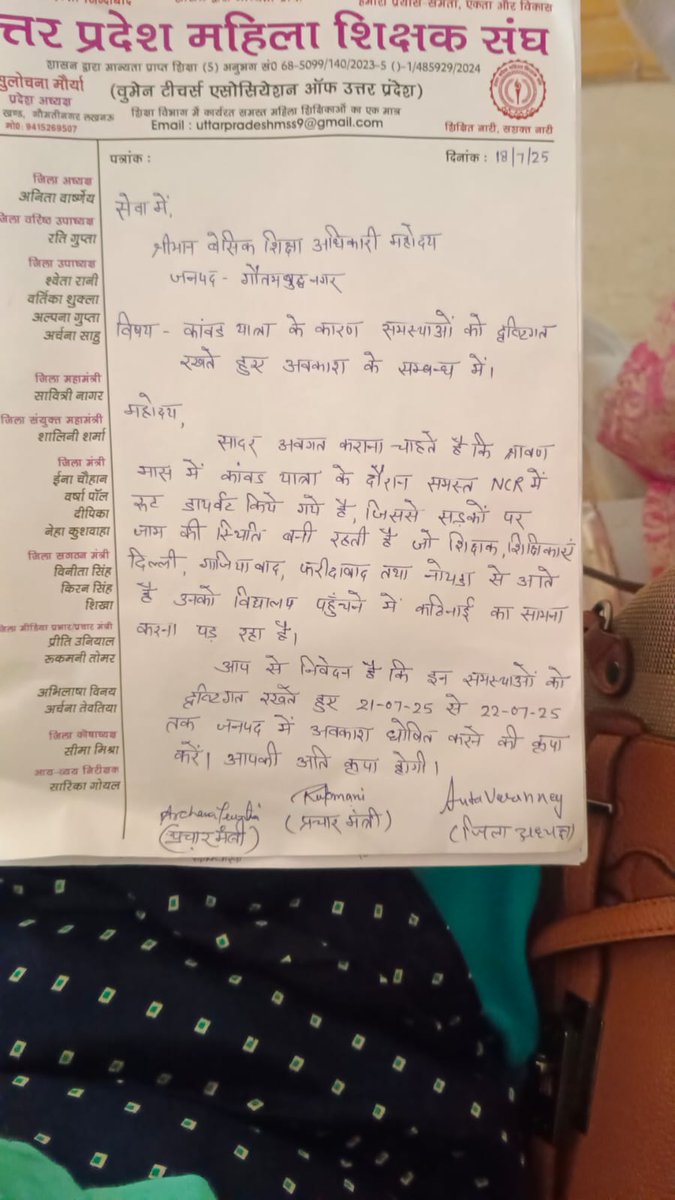 हमारा प्रयास-समता, एकता और विकास
त्तर प्रदेश महिला शिक्षक संघ
शासन द्वारा मान्यता प्राप्त शिक्षा (5) अनुभाग सं0 68-5099/140/2023-5 ()-1/485929/2024
सुलोचना मौर्या
प्रदेश अध्यक्ष
खण्ड, गौमतीनगर लखनऊ
मो0: 9415269507
(वुमेन टीचर्स एसोसियेशन ऑफ उत्तर प्रदेश)
शिक्षा विभाग में कार्यरत समस्त महिला शिक्षिकाओं का एक मात्र
Email : uttarpradeshmss9@gmail.com
शिक्षित नारी, सशक्त नारी
पत्रांक :
दिनांक : 18/7/25
जिला अध्यक्ष
अनिता वार्ष्णेय
जिला वरिष्ठ उपाध्यक्ष
रति गुप्ता
जिला उपाध्यक्ष
श्वेता रानी
वर्तिका शुक्ला
अल्पना गुप्ता
अर्चना साहु
जिला महामंत्री
सावित्री नागर
जिला संयुक्त महामंत्री
शालिनी शर्मा
जिला मंत्री
ईना चौहान
वर्षा पॉल
दीपिका
नेहा कुशवाहा
जिला सगठन मंत्री
विनीता सिंह
किरन सिंह
शिखा
जिला मीडिया प्रभार/प्रचार मंत्री
प्रीति उनियाल
रूकमनी तोमर
अभिलाषा विनय
अर्चना तेवतिया
जिला कोषाध्यक्ष
सीमा मिश्रा
आय-व्यय निरीक्षक
सारिका गोयल
सेवा में,
श्रीमान बेसिक शिक्षा अधिकारी महोदय
जनपद - गौतमबुद्धनगर
विषय - कांवड यात्रा के कारण समस्याओं को दृष्टिगत
रखते हुए अवकाश के सम्बन्ध में।
महोदय,
सादर अवगत कराना चाहते है कि श्रावण
मास में कांवड यात्रा के दौरान समस्त NCR में
रूट डायर्वट किये गये है, जिससे सड़कों पर
जाम की स्थिति बनी रहती है जो शिक्षक, शिक्षिकाएं
दिल्ली, गाजियाबाद, फरीदाबाद तथा नोयडा से आते
है उनको विद्यालय पहुँचने में कठिनाई का सामना
करना पड़ रहा है।
आप से निवेदन है कि इन समस्याओं को
दृष्टिगत रखते हुए 21-07-25 से 22-07-25
तक जनपद में अवकाश घोषित करने की कृपा
करें। आपकी अति कृपा होगी।
Archana Tewatia
(प्रचार मंत्री)
Rukmani
(प्रचार मंत्री)
Anita Varshney
(जिला अध्यक्ष)